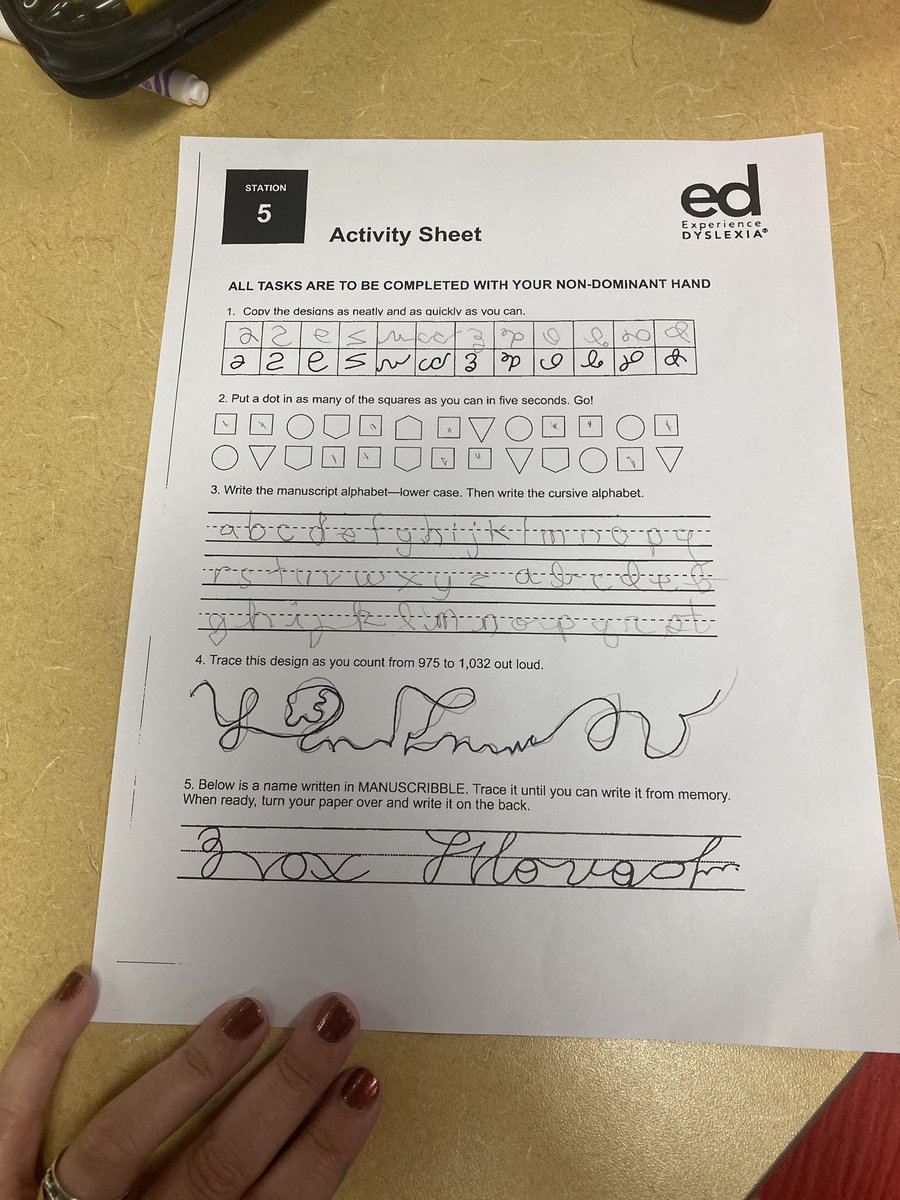 STATION
5
ed
Experience
DYSLEXIA®
Activity Sheet
ALL TASKS ARE TO BE COMPLETED WITH YOUR NON-DOMINANT HAND
1. Copy the designs as neatly and as quickly as you can.
2. Put a dot in as many of the squares as you can in five seconds. Go!
3. Write the manuscript alphabet—lower case. Then write the cursive alphabet.
a b c d e f g h i j k l m n o p q
r s t u v w x y z a b c d e f
g h i j k l m n o p q r s t
4. Trace this design as you count from 975 to 1,032 out loud.
5. Below is a name written in MANUSCRIBBLE. Trace it until you can write it from memory.
When ready, turn your paper over and write it on the back.